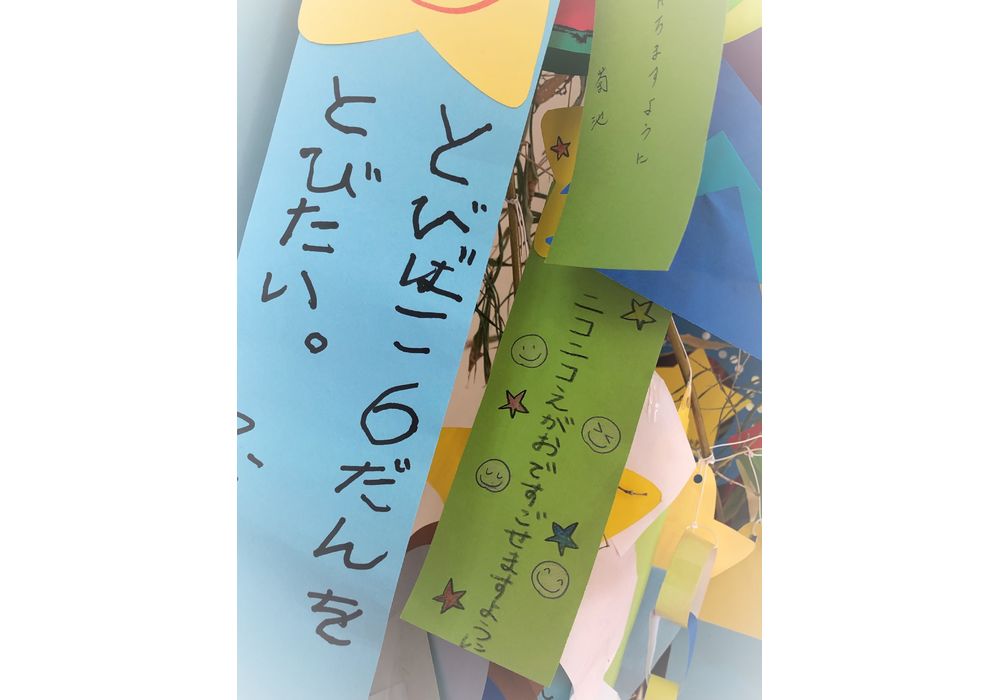 ますように
菊池
ニコニコえがおですごせますように
とびばこ6だんを
とびたい。